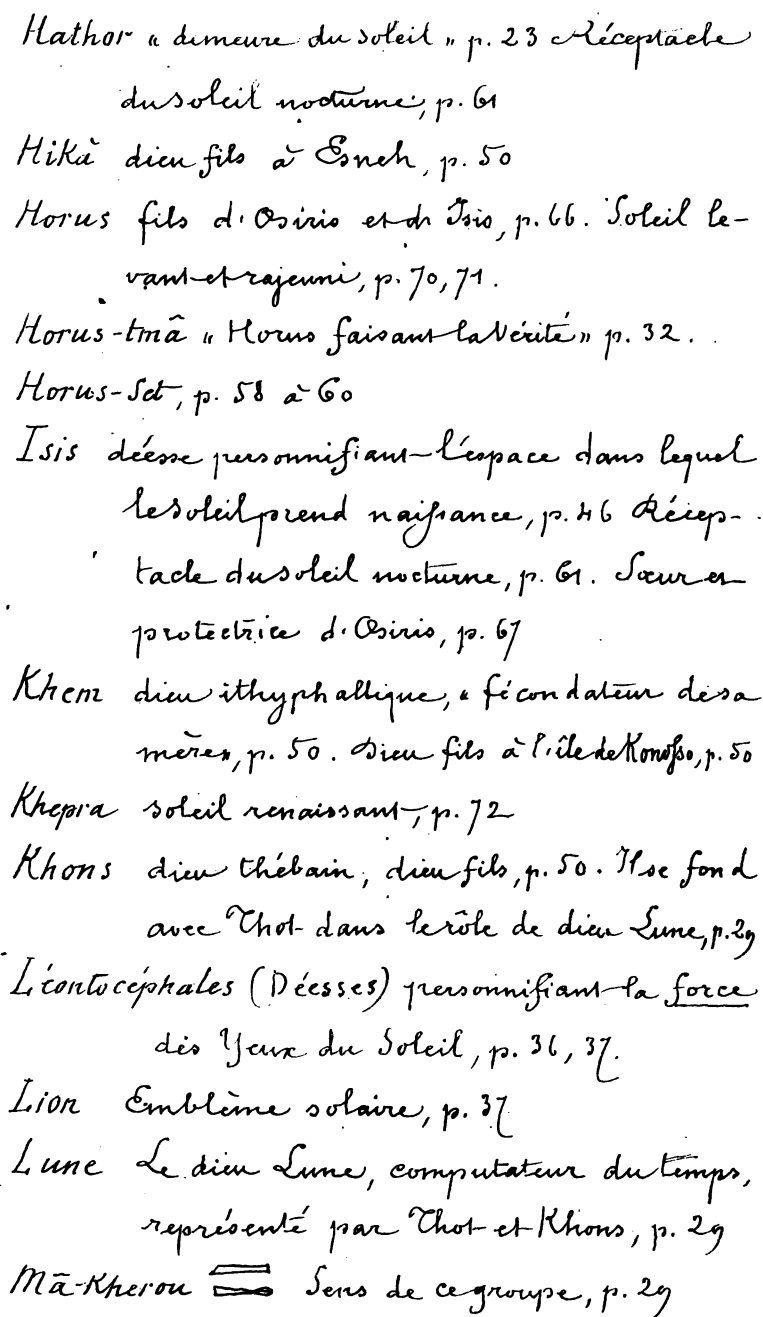 Hathor « demeure du soleil » p. 23 Réceptacle
du soleil nocturne, p. 61
Hikà dieu fils à Esneh, p. 50
Horus fils d'Osiris et de Isis, p. 66. Soleil le-
vant et rajeuni, p. 70, 71.
Horus-tmâ « Horus faisant la Vérité » p. 32.
Horus-Set, p. 58 à 60
Isis déesse personnifiant l'espace dans lequel
le soleil prend naissance, p. 46 Récep-
tacle du soleil nocturne, p. 61. Sœur et
protectrice d'Osiris, p. 67
Khem dieu ithyphallique, « fécondateur de sa
mère », p. 50. Dieu fils à l'île de Konosso, p. 50
Khepra soleil renaissant, p. 72
Khons dieu thébain, dieu fils, p. 50. Il se fond
avec Thot dans le rôle de dieu Lune, p. 29
Léontocéphales (Déesses) personnifiant la force
des Yeux du Soleil, p. 36, 37.
Lion Emblème solaire, p. 37
Lune Le dieu Lune, computateur du temps,
représenté par Thot et Khons, p. 29
Mā-Kherou Sens de ce groupe, p. 29